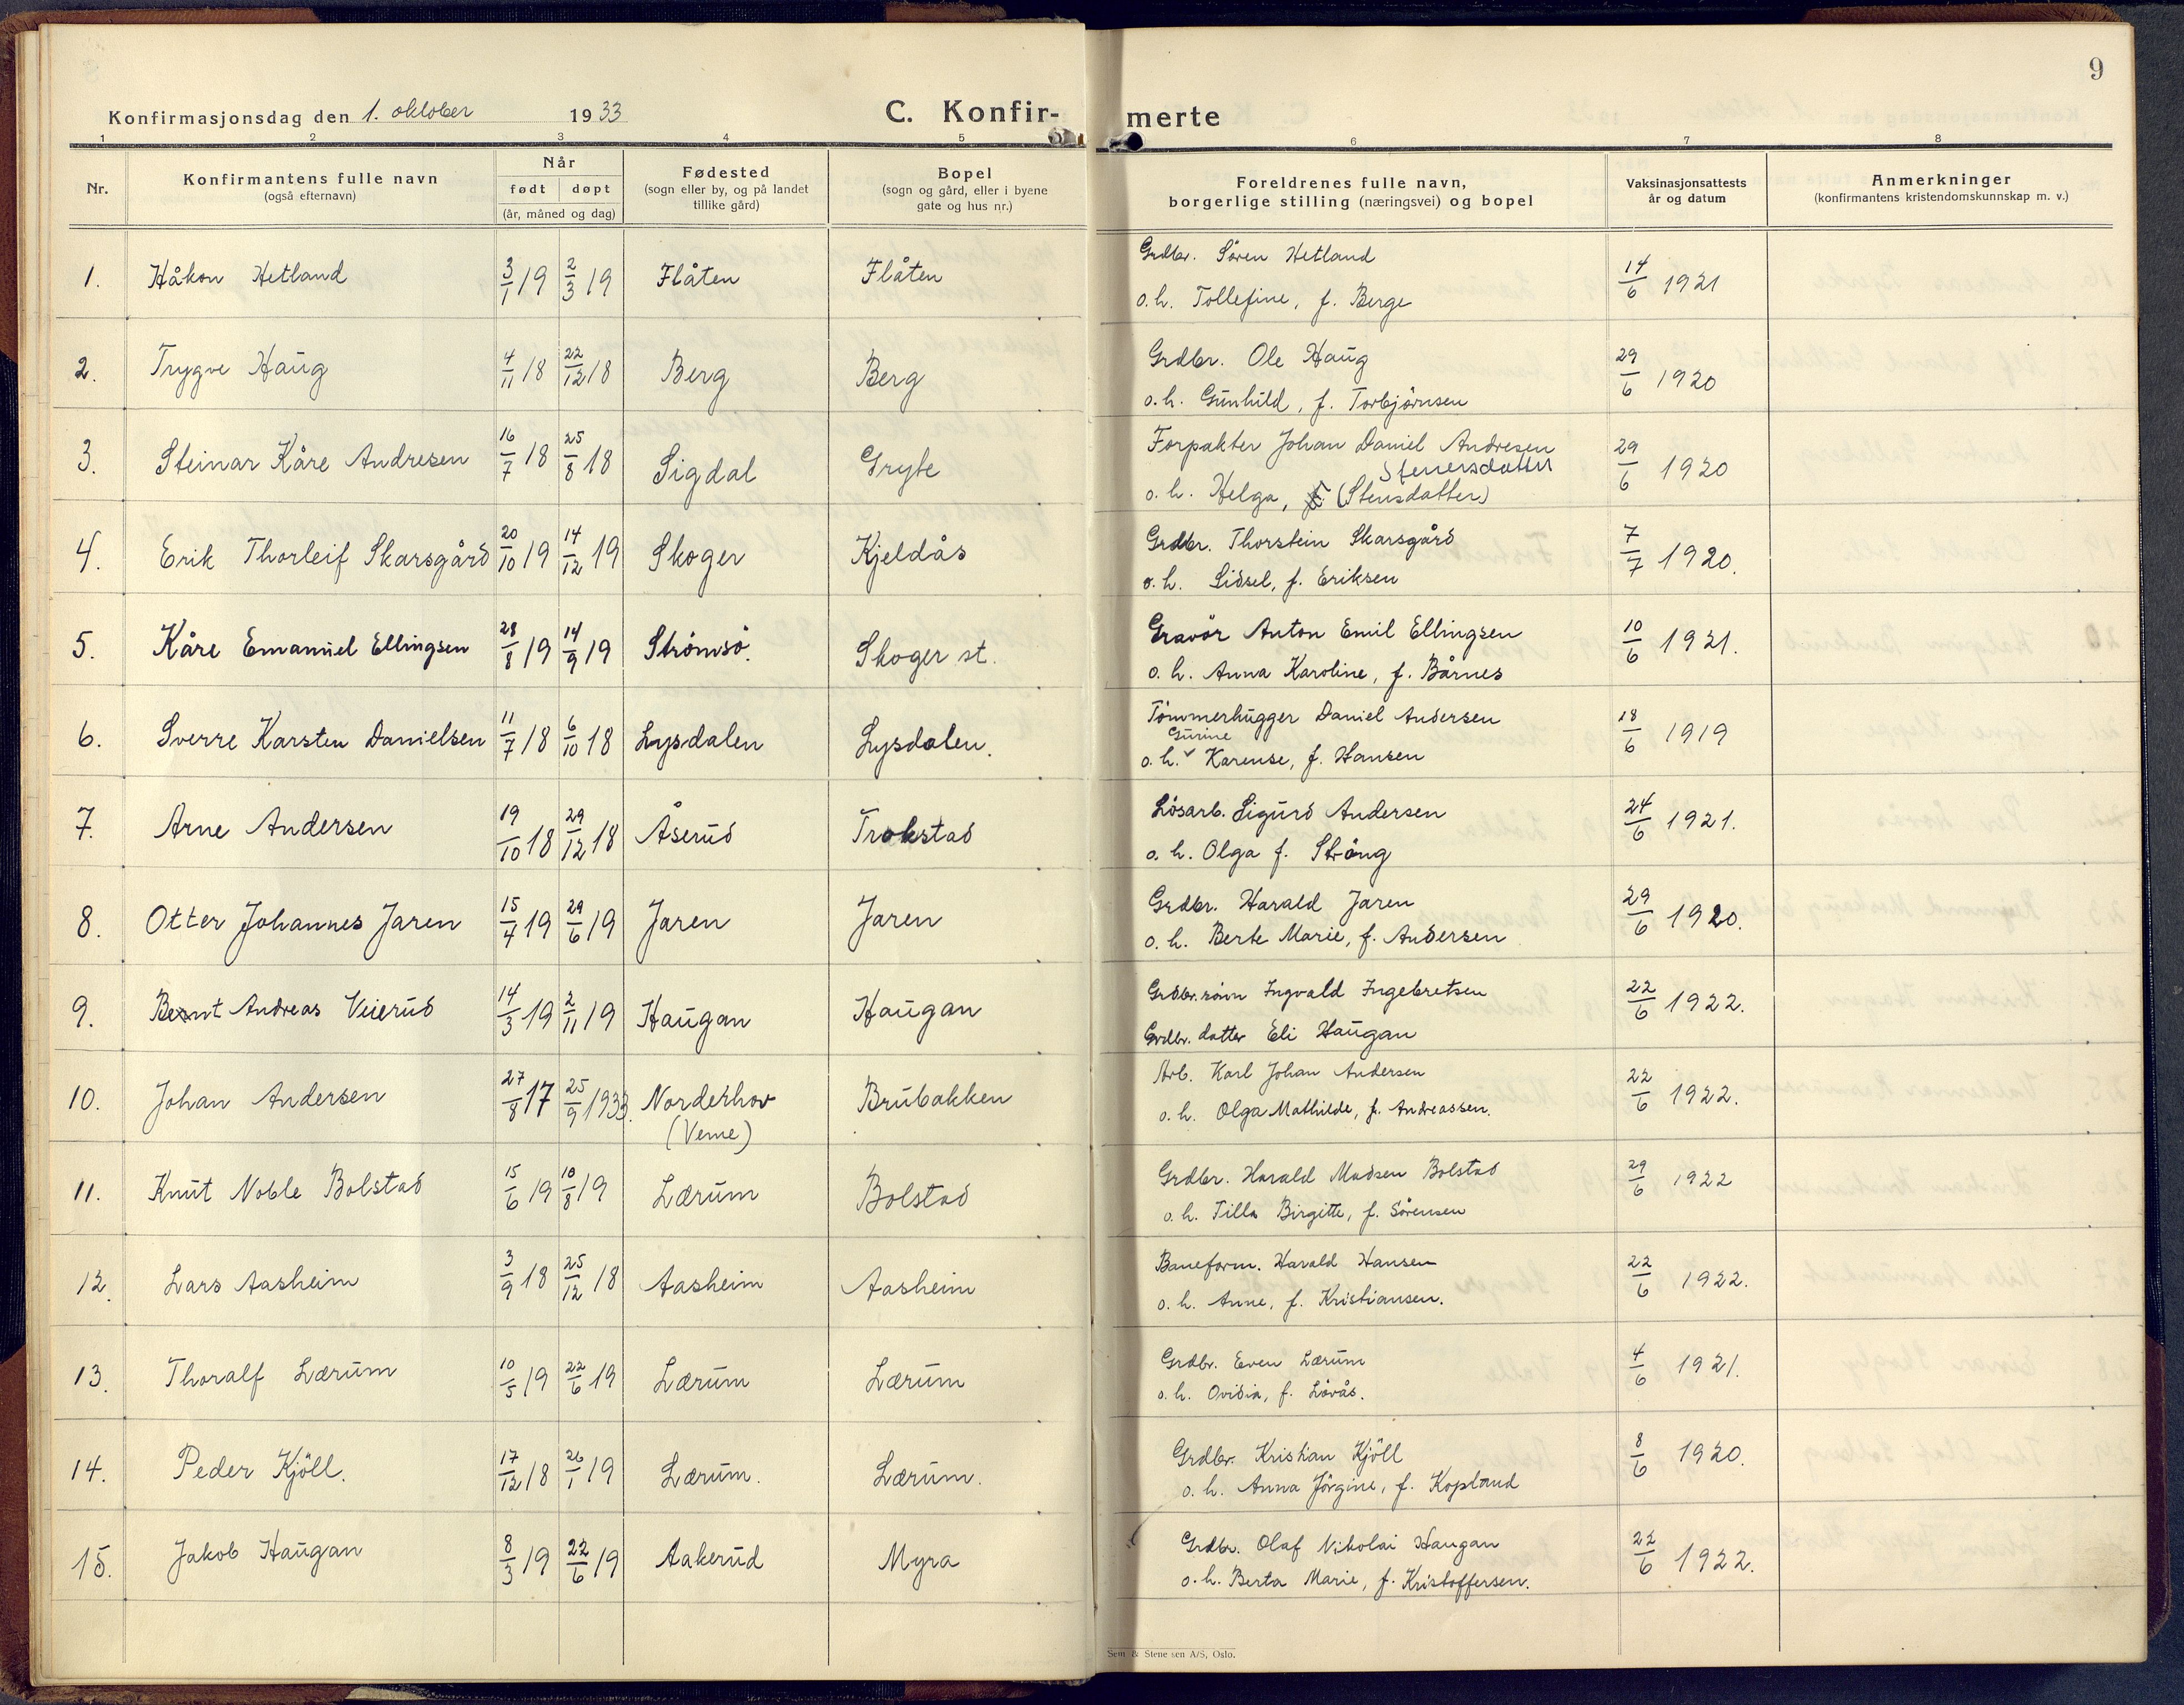 9
Konfirmasjonsdag den 1. oktober 1933 C. Konfirmerte
1 2 3 4 5 6 7 8
Nr. Konfirmantens fulle navn (også efternavn) Når født døpt (år, måned og dag) Fødested (sogn eller by, og på landet tillike gård) Bopel (sogn og gård, eller i byene gate og hus nr.) Foreldrenes fulle navn, borgerlige stilling (næringsvei) og bopel Vaksinasjonsattests år og datum Anmerkninger (konfirmantens kristendomskunnskap m. v.)
1. Håkon Hetland 3/1 19 2/3 19 Flåten Flåten Grdbr. Sören Hetland
o. h. Tollefine, f. Berge 14/6 1921
2. Trygve Haug 4/11 18 22/12 18 Berg Berg Grdbr. Ole Haug
o. h. Gunhild, f. Torbjörnsen 29/6 1920
3. Steinar Kåre Andresen 16/7 18 25/8 18 Sigdal Gryte Forpakter Johan Daniel Andresen
Stenersdatter
o. h. Helga, f. (Stensdatter) 29/6 1920
4. Erik Thorleif Skarsgård 20/10 19 14/12 19 Skoger Kjeldås Grdbr. Thorstein Skarsgård
o. h. Sidsel, f. Eriksen 7/7 1920.
5. Kåre Emanuel Ellingsen 28/8 19 14/9 19 Strömsö. Skoger st. Gravör Anton Emil Ellingsen
o. h. Anna Karoline, f. Bårnes 10/6 1921.
6. Sverre Karsten Danielsen 11/7 18 6/10 18 Lysdalen Lysdalen. Tömmerhugger Daniel Andersen
Gurine
o. h. Karense, f. Hansen 18/6 1919
7. Arne Andersen 19/10 18 29/12 18 Åserud Trokstad Lösarb. Sigurd Andersen
o. h. Olga f. Strång 24/6 1921.
8. Otter Johannes Jaren 15/4 19 29/6 19 Jaren Jaren Grdbr. Harald Jaren
o. h. Berte Marie, f. Andersen 29/6 1920.
9. Bernt Andreas Veierud 14/3 19 2/11 19 Haugan Haugan Grdbr. sönn Ingvald Ingebretsen
Grdbr. datter Eli Haugan 22/6 1922.
10. Johan Andersen 27/8 17 25/9 1933. Norderhov (Veme) Brubakken Arb. Karl Johan Andersen
o. h. Olga Mathilde, f. Andreassen. 22/6 1922.
11. Knut Noble Bolstad 15/6 19 10/8 19 Lærum Bolstad Grdbr. Harald Madsen Bolstad
o. h. Tilla Birgitte, f. Sörensen 29/6 1922
12. Lars Aasheim 3/9 18 25/12 18 Aasheim Aasheim Baneform. Harald Hansen
o. h. Anne, f. Kristiansen. 22/6 1922.
13. Thoralf Lærum 10/5 19 22/6 19 Lærum Lærum Grdbr. Even Lærum
o. h. Ovidia, f. Lövås. 4/6 1921.
14. Peder Kjöll. 17/12 18 26/1 19 Lærum. Lærum. Grdbr. Kristian Kjöll
o. h. Anna Jörgine, f. Kopland 8/6 1920.
15. Jakob Haugan 8/3 19 22/6 19 Aakerud Myra Grdbr. Olaf Nikolai Haugan
o. h. Berta Marie, f. Kristoffersen. 22/6 1922.
Sem & Stenersen A/S, Oslo.